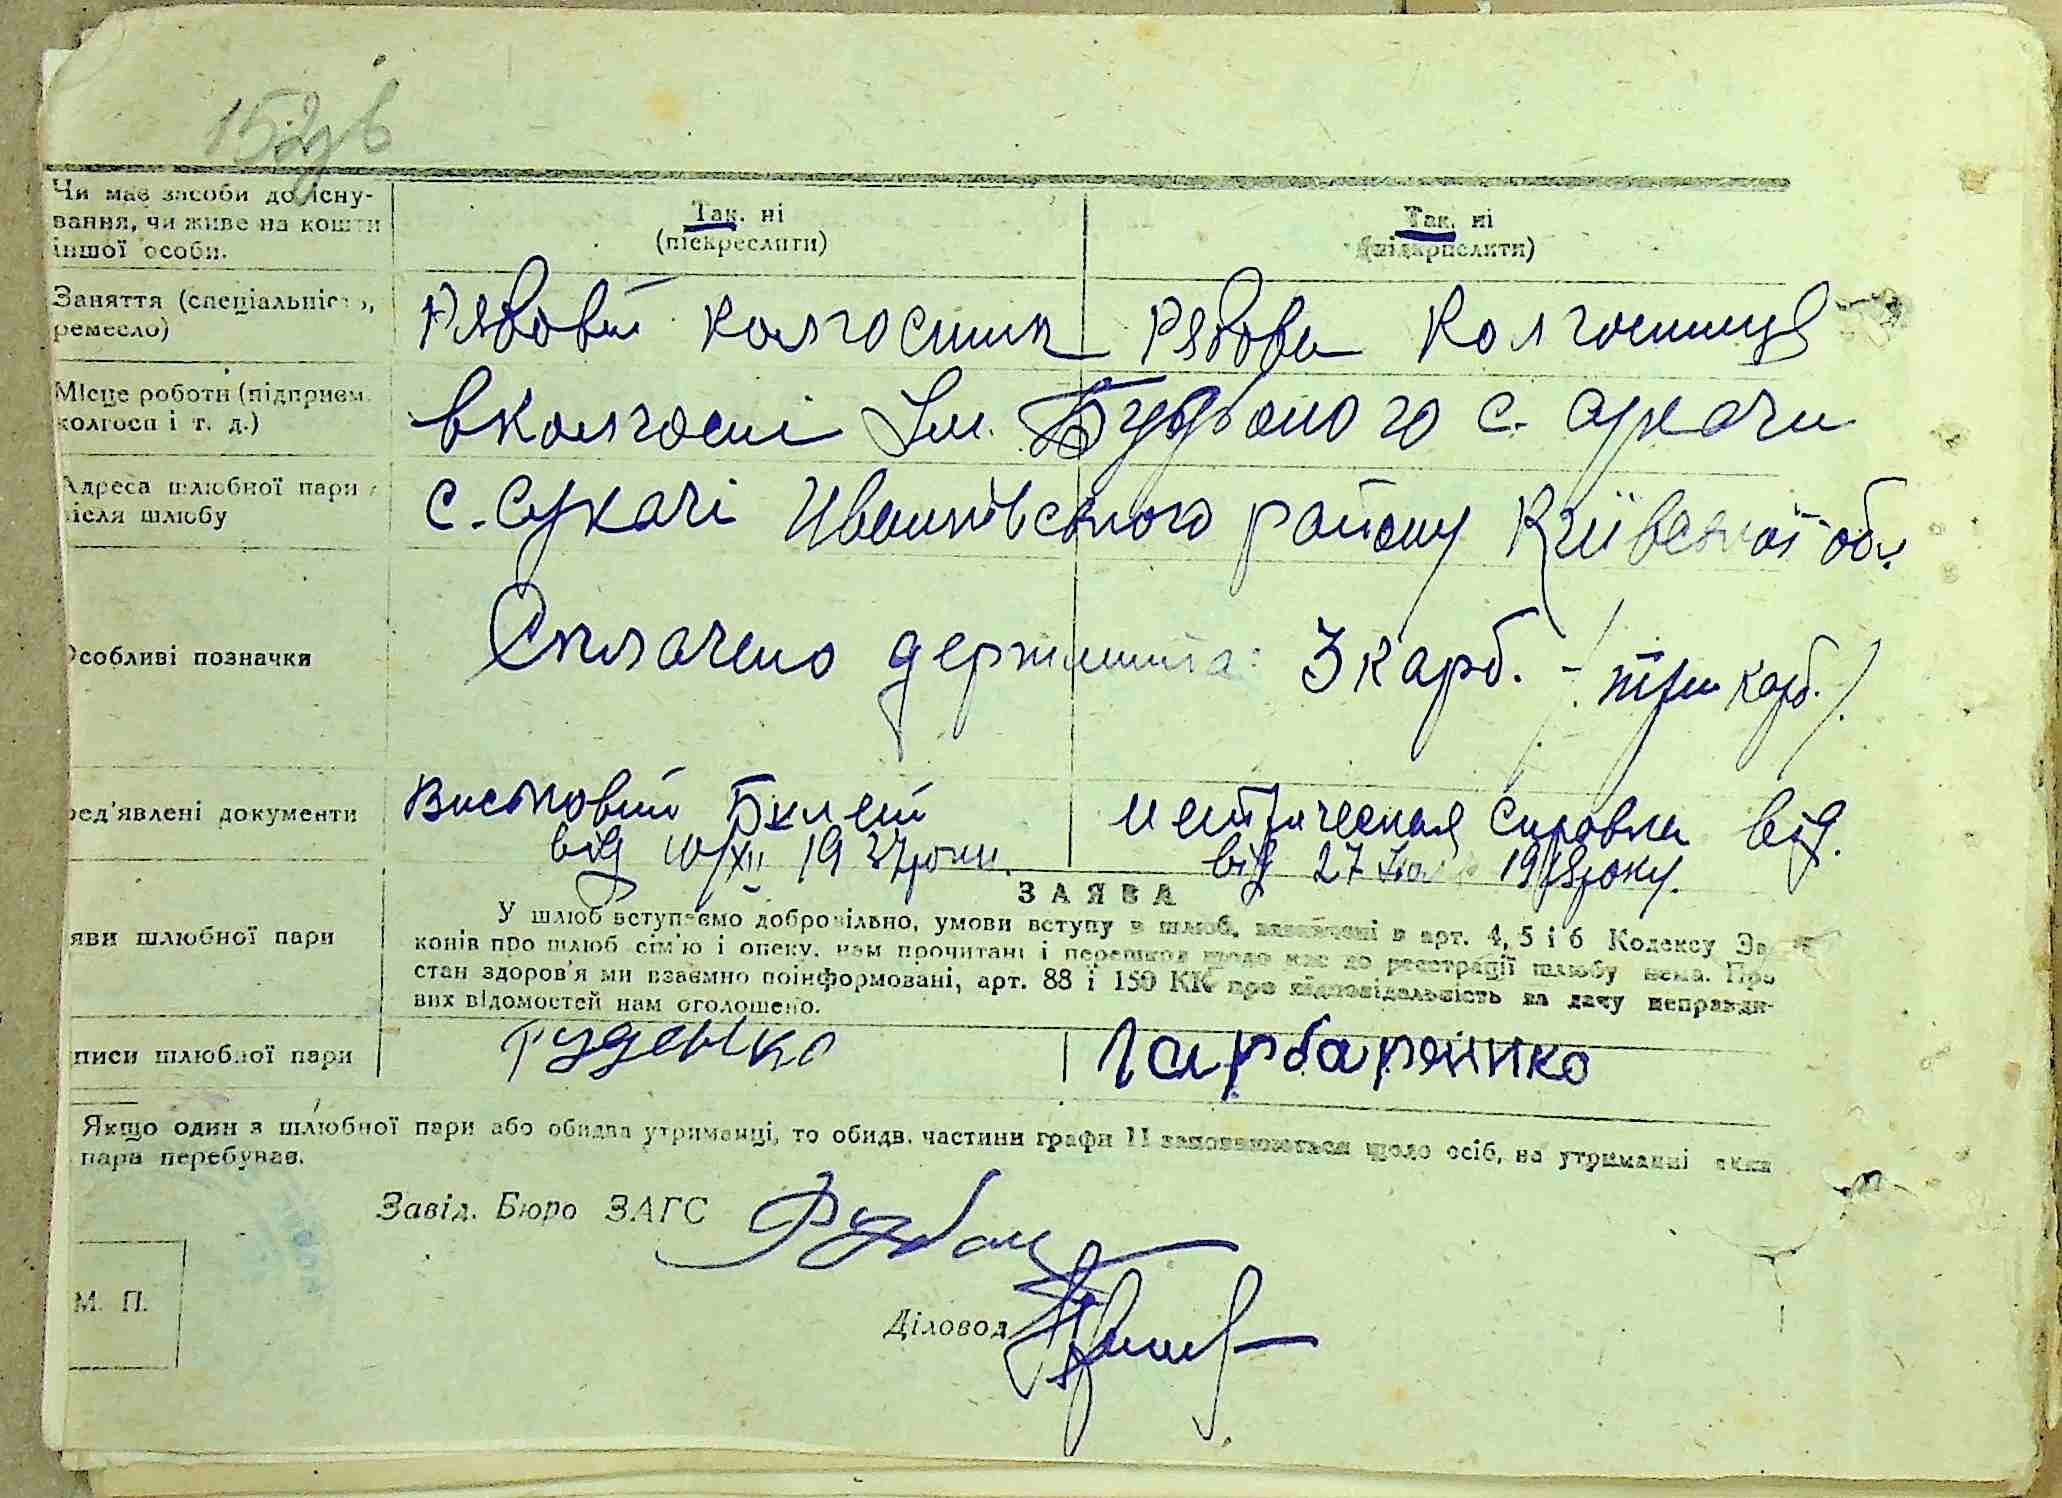 152зв
Чи має засоби до існу-
вання, чи живе на кошти
іншої особи.
Так. ні
(піскреслити)
Так. ні
(підкрнслити)
Заняття (спеціальність,
ремесло)
Рядовий колгоспник
Рядова колгоспниця
Місце роботи (підприєм.
колгосп і т. д.)
вколгоспі Ім. Будьоного с. Сукачи
Адреса шлюбної пари
після шлюбу
с. Сукачі Иванківського району Київської обл.
Особливі позначки
Сплачено держмита: 3 карб. - /три карб./.
ред'явлені документи
Висковий Билет
від 10/XII 1937 року.
метрическая справка від.
від 27 19 року.
ЗАЯВА
яви шлюбної пари
У шлюб вступаємо добровільно, умови вступу в шлюб, зазначені в арт. 4, 5 і 6 Кодексу За
конів про шлюб сім'ю і опеку, нам прочитані і перешкод щодо нас до реєстрації шлюбу нема. Про
стан здоров'я ми взаємно поінформовані, арт. 88 і 150 КК про відповідальність за дачу неправди-
вих відомостей нам оголошено.
писи шлюбної пари
Руденько
Гарбаренико
Якщо один з шлюбної пари або обидва утриманці, то обидв. частини графи 11 заповнюються щодо осіб, на утриманні яких
пара перебував.
Завід. Бюро ЗАГС
Діловод
М. П.